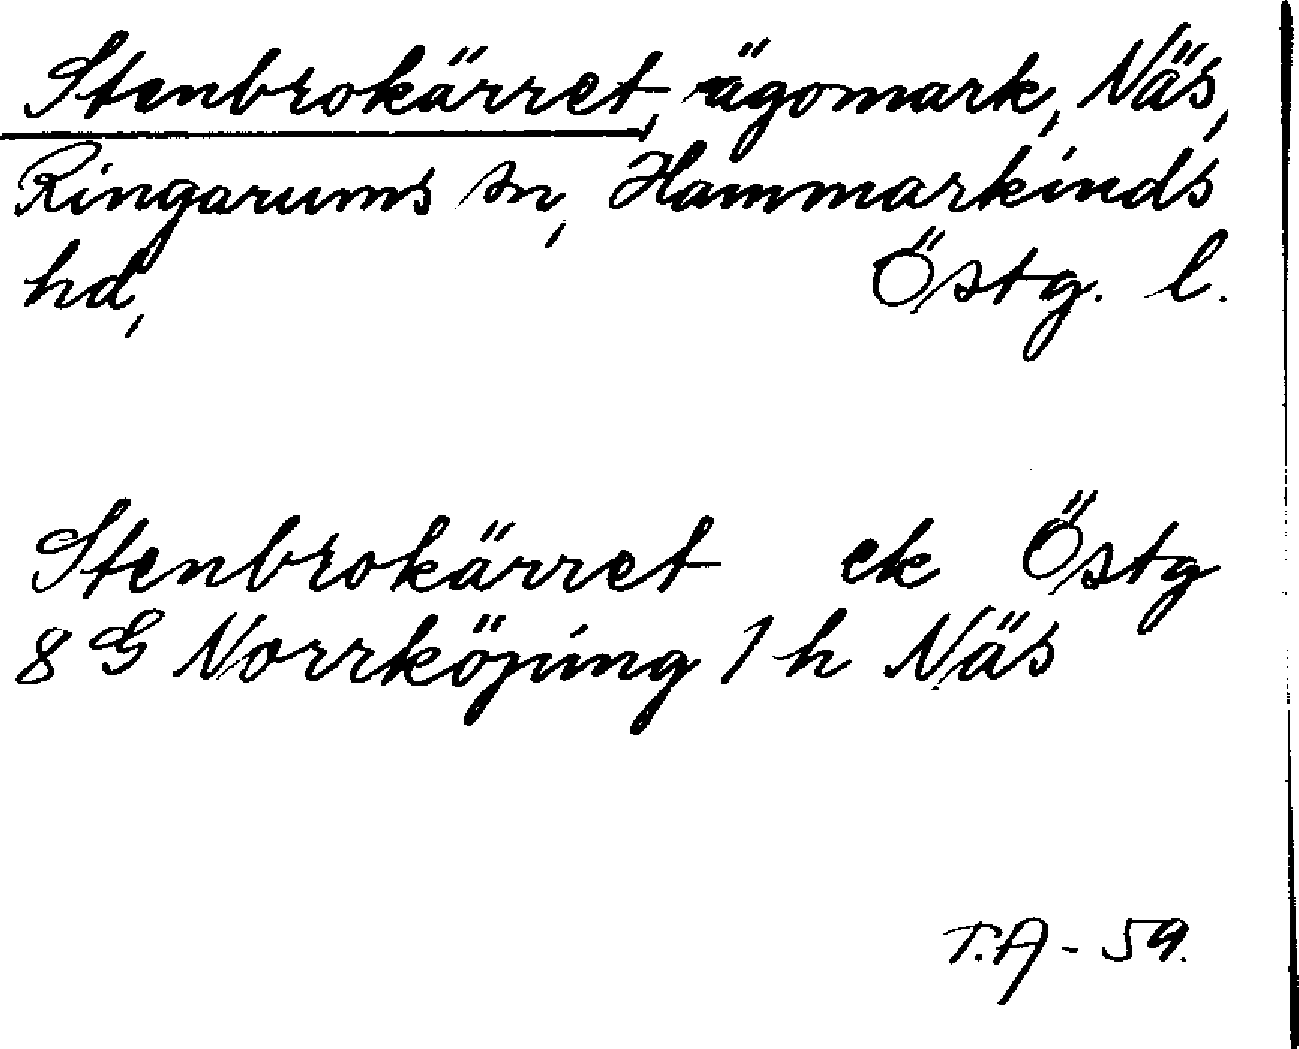 Stenbrokärret, ägomark, Näs,
Ringarums sn, Hammarkinds
hd, Östg. l.
Stenbrokärret ek Östg
8 G Norrköping 1 h Näs
T.A - 59.